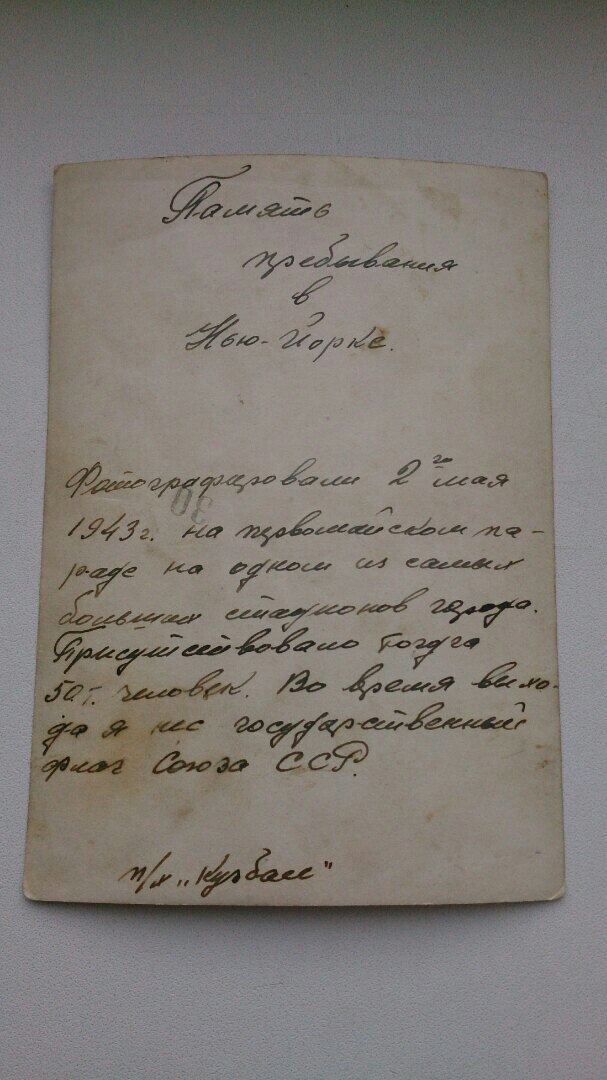 Память
пребывания
в
Нью-Йорке.
Фотографировали 2го мая
1943г. на первомайском па-
раде на одном из самых
больших стадионов города.
Присутствовало тогда
50т. человек. Во время выхо-
да я нес государственный
флаг Союза ССР.
п/х "Кузбасс"